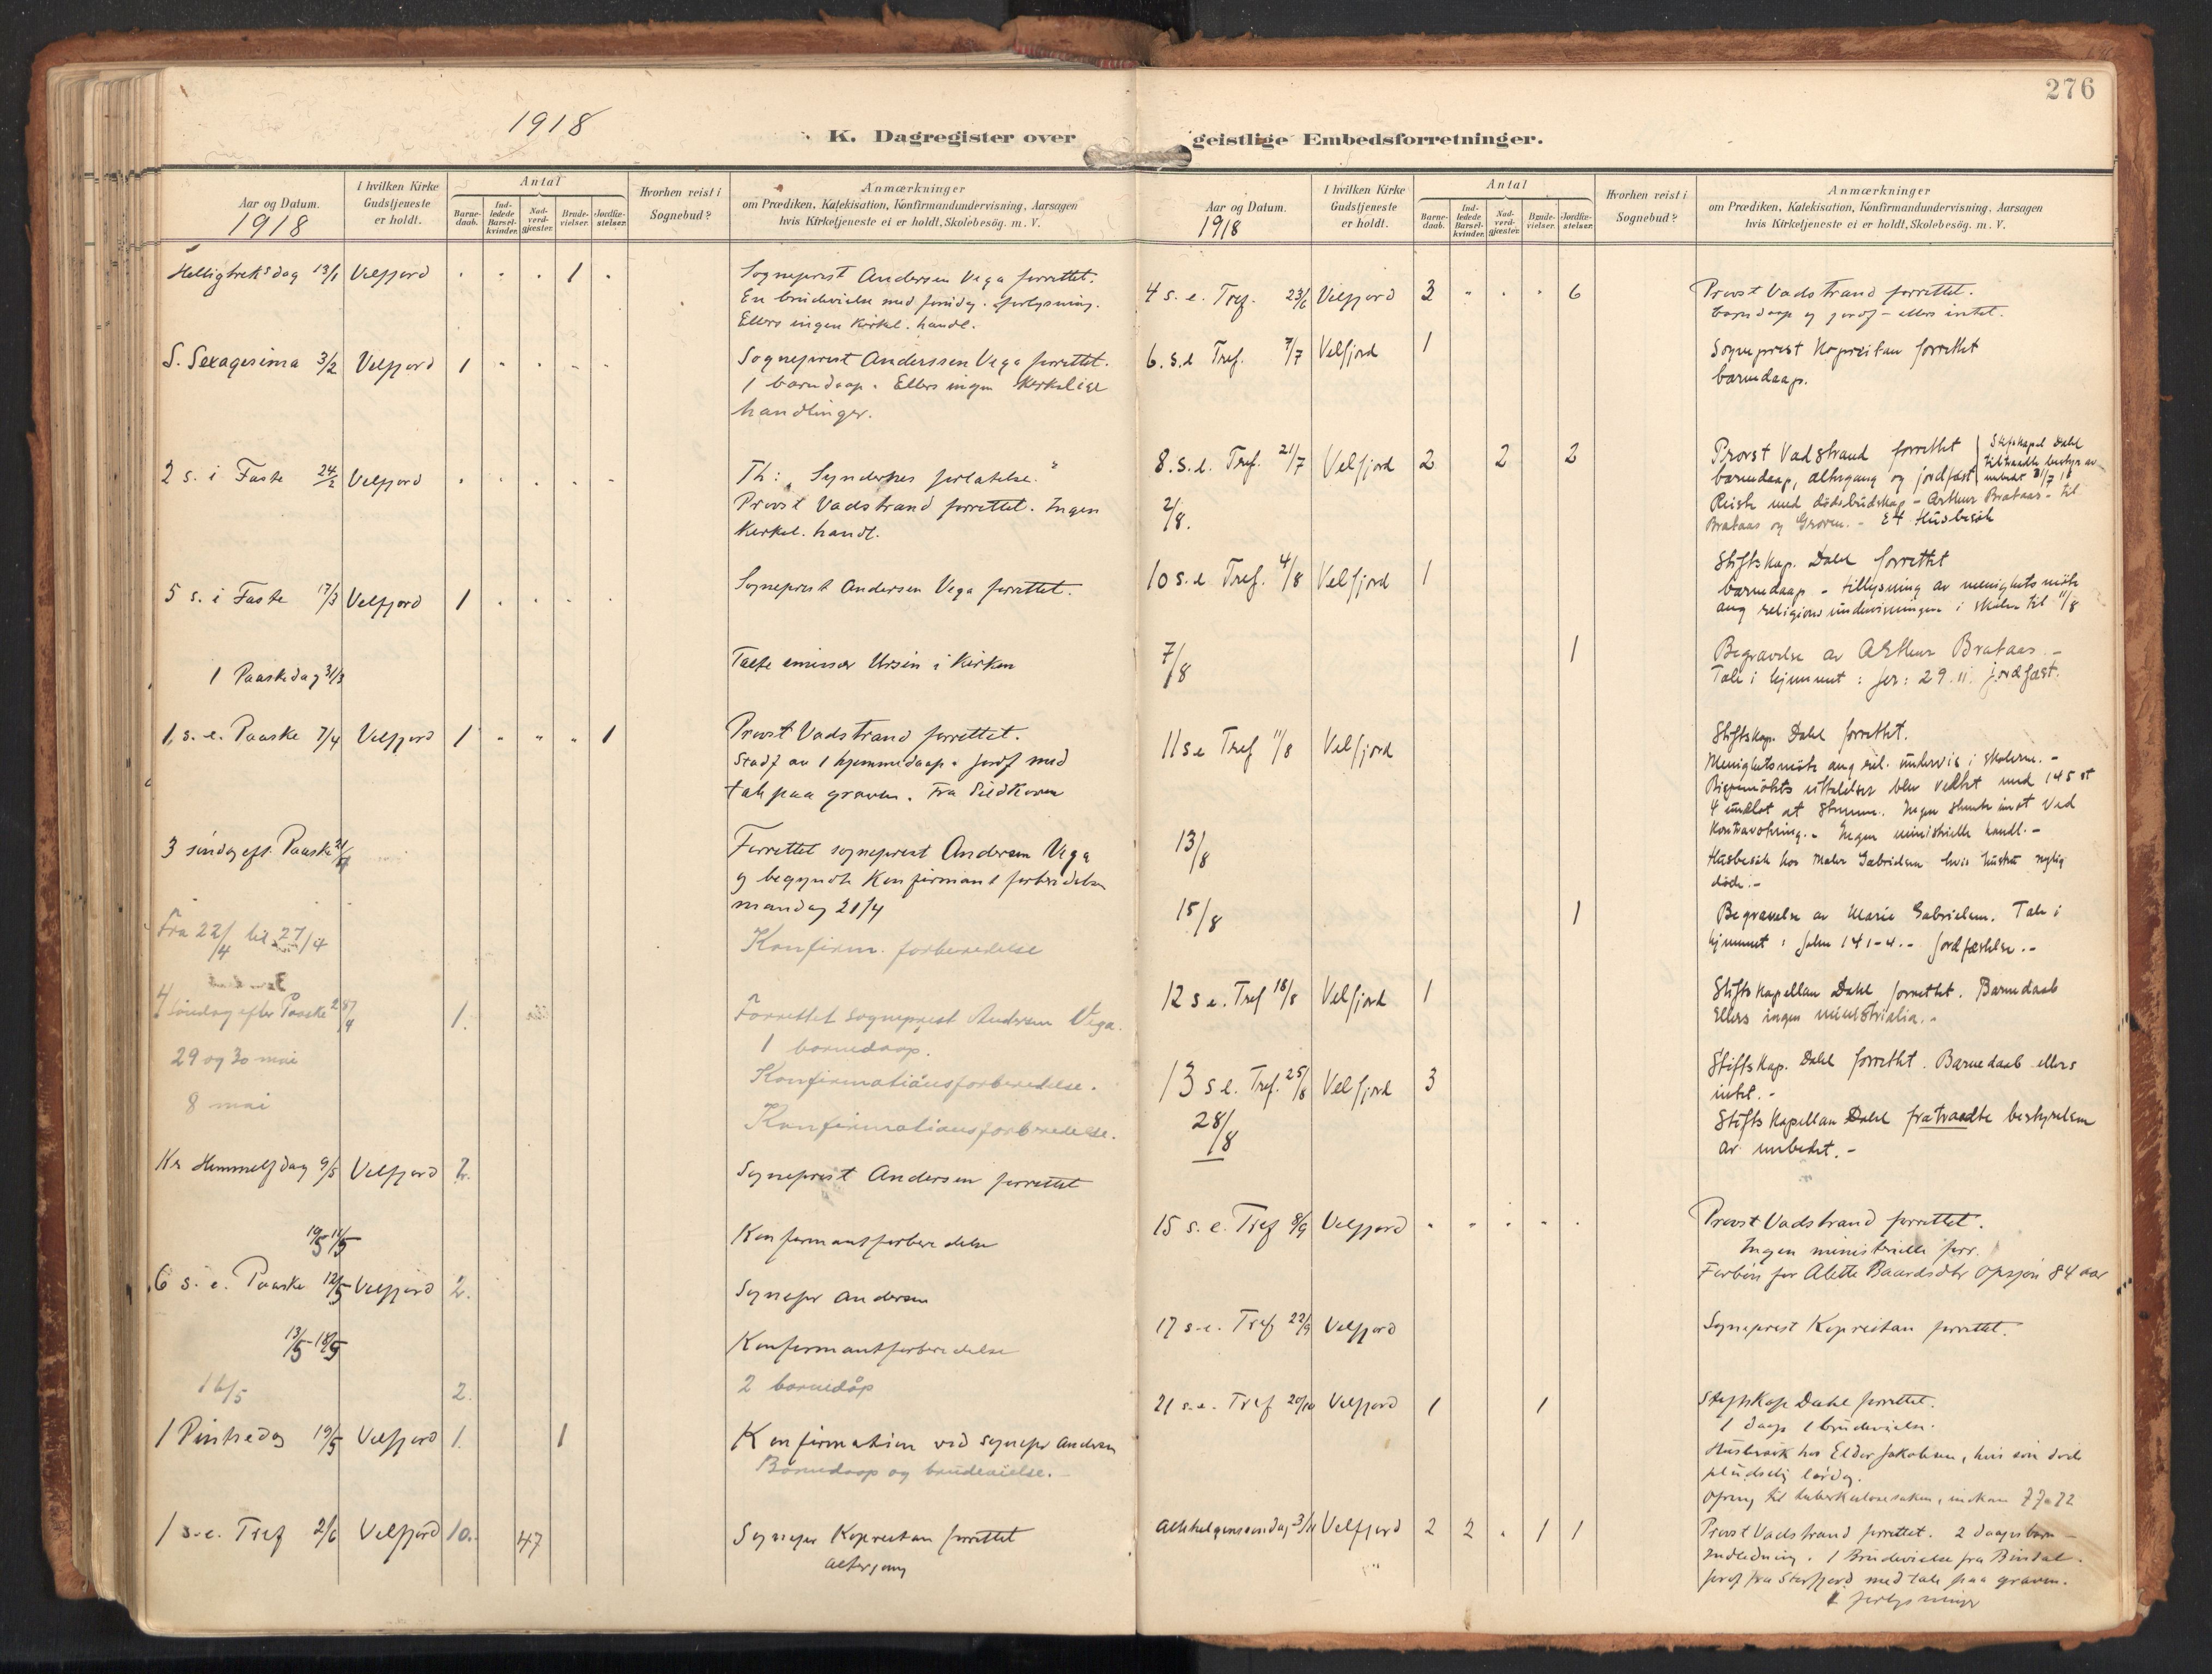 276
1918
K. Dagregister over geistlige Embedsforretninger.
Aar og Datum.
1918
I hvilken Kirke Gudstjeneste er holdt.
Antal
Barne-daab.
Ind-ledede Barsel-kvinder.
Nad-verd-gjæster.
Brude-vielser.
Jordfæ-stelser.
Hvorhen reist i Sognebud?
Anmærkninger
om Prædiken, Katekisation, Konfirmandundervisning, Aarsagen
hvis Kirketjeneste ei er holdt, Skolebesøg. m. V.
Helligtrek dag 13/1 Velfjord . . . 1 . Sogneprest Andersen Vega forrettet.
En brudevielse med foreg. forlysning.
Ellers ingen kirkel. handl.
S. Sexagesima 3/2 Velfjord 1 . . . . Sogneprest Anderssen Vega forrettet.
1 barnedaap. Ellers ingen kirkelige
handlinger.
2 s. i Faste 24/2 Velfjord . . . . . Th: „Syndernes forlatelse."
Provst Vadstrand forrettet. Ingen
kirkel. handl.
5 s. i Faste 17/3 Velfjord 1 . . . . Sogneprest Andersen Vega forrettet.
1 Paaskedag 31/3 Talte emissær Ursin i kirken
1. s. e. Paaske 7/4 Velfjord 1 . . . 1 Provst Vadstrand forrettet.
Stadf av 1 hjemmedaap. Jordf med
tale paa graven. Fra
3 søndag eft. Paaske 21/4 Forrettet sogneprest Andersen Vega
og begyndte Konfirmant forberedelsen
mandag 21/4
Fra 22/4 til 27/4 Konfirm. forberedelse
4 søndag efter Paaske 28/4 1. Forrettet sogneprest Andersen Vega.
1 barnedaap.
29 og 30 mai Konfirmationsforberedelse.
8 mai Konfirmationsforberedelse.
Kr Himmelfdag 9/5 Velfjord 2. Sogneprest Andersen forrettet
10/5-11/5 Konfirmantforberedelse
6 s. e. Paaske 12/5 Velfjord 2. Sognepr Andersen
13/5-18/5 Konfirmantforberedelse
16/5 2. 2 barnedåp
1 Pinsedag 19/5 Velfjord 1. 1 Konfirmation ved sognepr Andersen
Barnedaap og brudevielse.
1 s.e. Tref 2/6 Velfjord 10. 47 Sognepr Kopreitan forrettet
altergang
Aar og Datum.
1918
I hvilken Kirke Gudstjeneste er holdt.
Antal
Barne-daab.
Ind-ledede Barsel-kvinder.
Nad-verd-gjæster.
Brude-vielser.
Jordfæ-stelser.
Hvorhen reist i Sognebud?
Anmærkninger
om Prædiken, Katekisation, Konfirmandundervisning, Aarsagen
hvis Kirketjeneste ei er holdt, Skolebesøg. m. V.
4 s. e. Tref. 23/6 Velfjord 3 . . . 6 Provst Vadstrand forrettet.
barnedaap og jordf - ellers intet.
6. s.e Tref. 7/7 Velfjord 1 Sogneprest Kopreitan forrettet
barnedaap.
8. s.e. Tref. 21/7 Velfjord 2 2 2 Provst Vadstrand forrettet
barnedaap, altergang og jordfæst
Stiftskapel Dahl
tiltraadte bestyr av
embedet 31/7 18
2/8. Reiste med dødsbudskap - Arthur Brataas - til
Brataas og Groven. - Et Husbesøk
10 s.e Tref. 4/8 Velfjord 1 Stiftskap. Dahl forrettet
barnedaap - tillysning av menighetsmøte
ang religionsundervisningen i skolen til 11/8
7/8 1 Begravelse av Arthur Brataas. -
Tale i hjemmet: Jer: 29.11. jordfæst.
11 s e Tref 11/8 Velfjord Stiftskap. Dahl forrettet.
Menighetsmøte ang rel. undervis i skolerne. -
Bispemøtets uttalelser blev vedtat med 145 st
4 undlot at stemme. Ingen stemte imot ved
kontravotering. - Ingen ministrielle handl. -
13/8 Husbesøk hos Gabrielsen hvis hustru nylig
døde. -
15/8 1 Begravelse av Marie Gabrielsen. Tale i
hjemmet: Joh 14 1-4. - Jordfæstelse. -
12 s e. Tref 18/8 Velfjord 1 Stiftskapellan Dahl forrettet. Barnedaab
Ellers ingen ministrialia. -
13 s e. Tref. 25/8 Velfjord 3 Stiftskap. Dahl forrettet. Barnedaab ellers
intet. -
28/8 Stiftskapellan Dahl fratraadte bestyrelsen
av embedet. -
15 s. e. Tref 8/9 Velfjord . . . . . Provst Vadstrand forrettet.
Ingen ministerielle forr.
Forbøn for Alette Baardsdtr Opsjøn 84 aar
17 s. e. Tref 22/9 Velfjord Sogneprest Kopreitan forrettet.
21 s. e. Tref 20/10 Velfjord 1 1 Stiftskap Dahl forrettet.
1 daap 1 brudevielse.
Husbesøk hos Eldor Jakobsen, hvis søn døde
pludselig lørdag.
Ofring til tuberkulosesaken, indkom 77.72
Allehelgenssøndag 3/11 Velfjord 2 2 . 1 1 Provst Vadstrand forrettet. 2 daapsbarn -
Indledning. 1 Brudevielse fra Bindal.
Jordf fra Storfjord med tale paa graven.
forlysninger